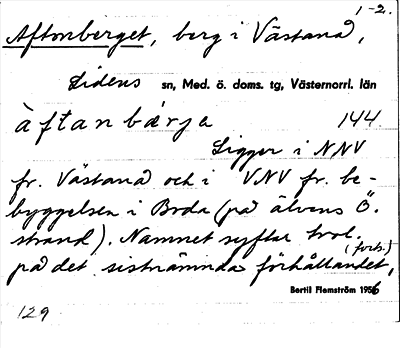 1-2.
Aftonberget, berg i Västanå,
Lidens sn, Med. ö. doms. tg, Västernorrl. län
àftanbárja 144
Ligger i NNV
fr. Västanå och i VNV fr. be-
byggelsen i Boda (på älvens Ö.
strand). Namnet syftar trol.
på det sistnämnda förhållandet,
(forts.)
Bertil Flemström 1956
129